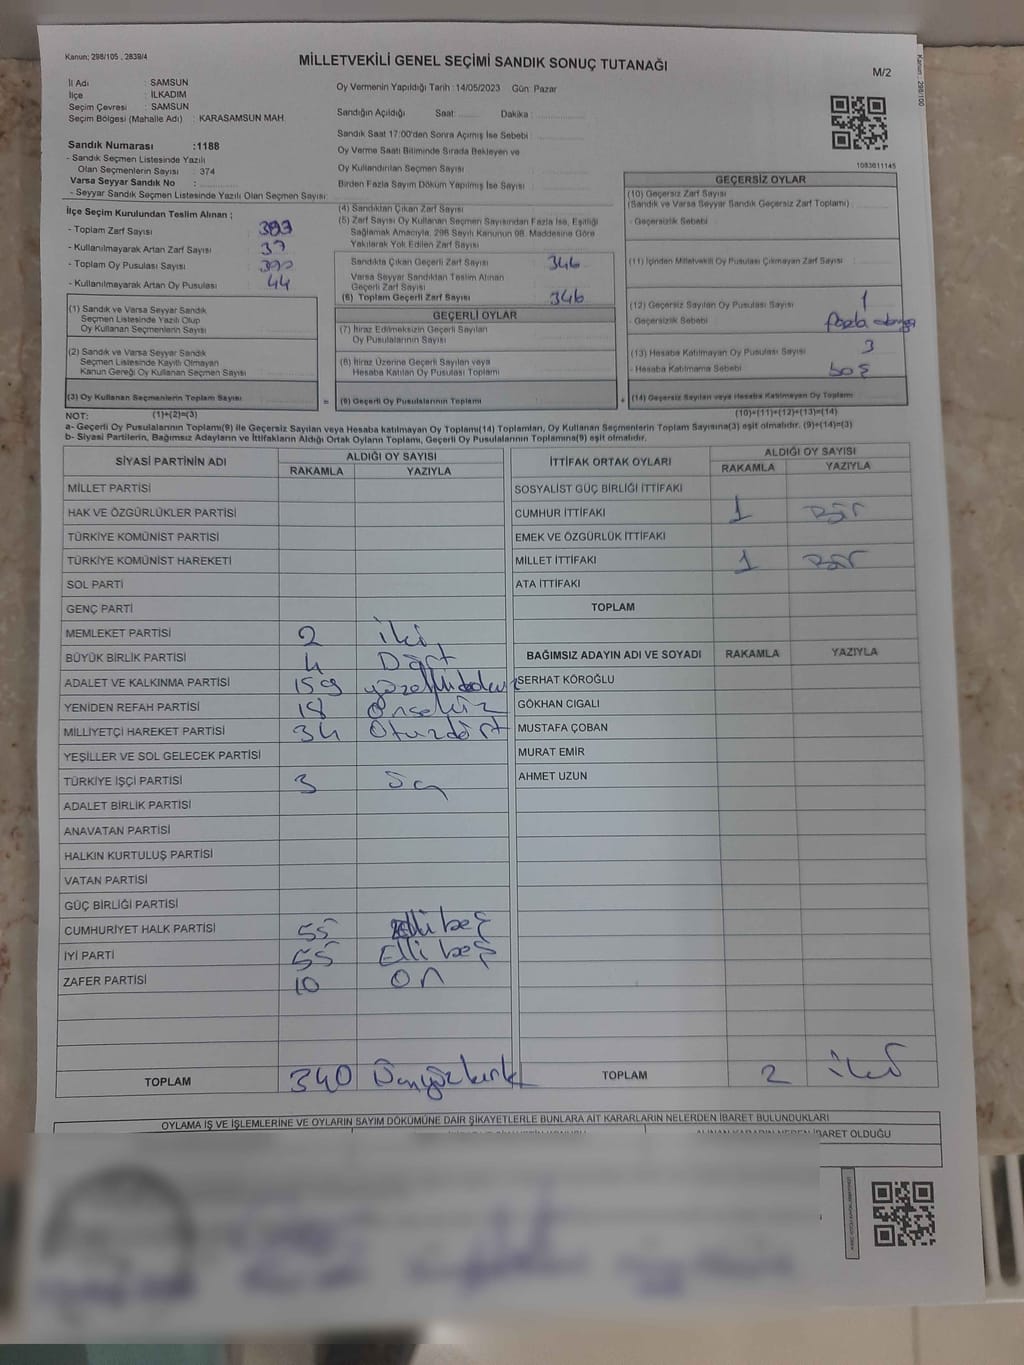 Kanun; 298/105 , 2839/4
MİLLETVEKİLİ GENEL SEÇİMİ SANDIK SONUÇ TUTANAĞI
M/2
Kanun; 298/100
İl Adı : SAMSUN
İlçe : İLKADIM
Seçim Çevresi : SAMSUN
Seçim Bölgesi (Mahalle Adı) : KARASAMSUN MAH.
Oy Vermenin Yapıldığı Tarih : 14/05/2023 Gün: Pazar
Sandığın Açıldığı Saat: Dakika :
Sandık Saat 17:00'den Sonra Açımış İse Sebebi :
Oy Verme Saati Bitiminde Sırada Bekleyen ve
Oy Kullandırılan Seçmen Sayısı :
Birden Fazla Sayım Döküm Yapılmış İse Sayısı :
1083011145
Sandık Numarası :1188
- Sandık Seçmen Listesinde Yazılı
Olan Seçmenlerin Sayısı : 374
Varsa Seyyar Sandık No :
- Seyyar Sandık Seçmen Listesinde Yazılı Olan Seçmen Sayısı
İlçe Seçim Kurulundan Teslim Alınan ;
- Toplam Zarf Sayısı :
- Kullanılmayarak Artan Zarf Sayısı : 37
- Toplam Oy Pusulası Sayısı :
- Kullanılmayarak Artan Oy Pusulası : 44
(1) Sandık ve Varsa Seyyar Sandık
Seçmen Listesinde Yazılı Olup
Oy Kullanan Seçmenlerin Sayısı :
(2) Sandık ve Varsa Seyyar Sandık
Seçmen Listesinde Kayıtlı Olmayan
Kanun Gereği Oy Kullanan Seçmen Sayısı :
(3) Oy Kullanan Seçmenlerin Toplam Sayısı :
(4) Sandıktan Çıkan Zarf Sayısı
(5) Zarf Sayısı Oy Kullanan Seçmen Sayısından Fazla İse, Eşitliği
Sağlamak Amacıyla, 298 Sayılı Kanunun 98. Maddesine Göre
Yakılarak Yok Edilen Zarf Sayısı
Sandıkta Çıkan Geçerli Zarf Sayısı : 346
Varsa Seyyar Sandıktan Teslim Alınan
Geçerli Zarf Sayısı :
(6) Toplam Geçerli Zarf Sayısı : 346
GEÇERLİ OYLAR
(7) İtiraz Edilmeksizin Geçerli Sayılan
Oy Pusulalarının Sayısı :
(8) İtiraz Üzerine Geçerli Sayılan veya
Hesaba Katılan Oy Pusulası Toplamı :
= (9) Geçerli Oy Pusulalarının Toplamı :
GEÇERSİZ OYLAR
(10) Geçersiz Zarf Sayısı
(Sandık ve Varsa Seyyar Sandık Geçersiz Zarf Toplamı) :
- Geçersizlik Sebebi :
(11) İçinden Milletvekili Oy Pusulası Çıkmayan Zarf Sayısı :
(12) Geçersiz Sayılan Oy Pusulası Sayısı : 1
- Geçersizlik Sebebi : fazla
(13) Hesaba Katılmayan Oy Pusulası Sayısı : 3
- Hesaba Katılmama Sebebi : boş
+ (14) Geçersiz Sayılan veya Hesaba Katılmayan Oy Toplamı :
NOT: (1)+(2)=(3)
(10)+(11)+(12)+(13)=(14)
a- Geçerli Oy Pusulalarının Toplamı(9) ile Geçersiz Sayılan veya Hesaba Katılmayan Oy Toplamı(14) Toplamları, Oy Kullanan Seçmenlerin Toplam Sayısına(3) eşit olmalıdır. (9)+(14)=(3)
b- Siyasi Partilerin, Bağımsız Adayların ve İttifakların Aldığı Ortak Oyların Toplamı, Geçerli Oy Pusulalarının Toplamına(9) eşit olmalıdır.
SİYASİ PARTİNİN ADI ALDIĞI OY SAYISI
RAKAMLA YAZIYLA
MİLLET PARTİSİ
HAK VE ÖZGÜRLÜKLER PARTİSİ
TÜRKİYE KOMÜNİST PARTİSİ
TÜRKİYE KOMÜNİST HAREKETİ
SOL PARTİ
GENÇ PARTİ
MEMLEKET PARTİSİ 2 iki
BÜYÜK BİRLİK PARTİSİ 4 Dört
ADALET VE KALKINMA PARTİSİ 159 yüzellidokuz
YENİDEN REFAH PARTİSİ 18 Onsekiz
MİLLİYETÇİ HAREKET PARTİSİ 34 Otuzdört
YEŞİLLER VE SOL GELECEK PARTİSİ
TÜRKİYE İŞÇİ PARTİSİ 3 üç
ADALET BİRLİK PARTİSİ
ANAVATAN PARTİSİ
HALKIN KURTULUŞ PARTİSİ
VATAN PARTİSİ
GÜÇ BİRLİĞİ PARTİSİ
CUMHURİYET HALK PARTİSİ 55 Elli beş
İYİ PARTİ 55 Elli beş
ZAFER PARTİSİ 10 ON
TOPLAM 340 Üçyüzkırk
İTTİFAK ORTAK OYLARI ALDIĞI OY SAYISI
RAKAMLA YAZIYLA
SOSYALİST GÜÇ BİRLİĞİ İTTİFAKI
CUMHUR İTTİFAKI 1 Bir
EMEK VE ÖZGÜRLÜK İTTİFAKI
MİLLET İTTİFAKI 1 Bir
ATA İTTİFAKI
TOPLAM
BAĞIMSIZ ADAYIN ADI VE SOYADI RAKAMLA YAZIYLA
SERHAT KÖROĞLU
GÖKHAN CIGALI
MUSTAFA ÇOBAN
MURAT EMİR
AHMET UZUN
TOPLAM 2 iki
OYLAMA İŞ VE İŞLEMLERİNE VE OYLARIN SAYIM DÖKÜMÜNE DAİR ŞİKAYETLERLE BUNLARA AİT KARARLARIN NELERDEN İBARET BULUNDUKLARI
İBARET OLDUĞU